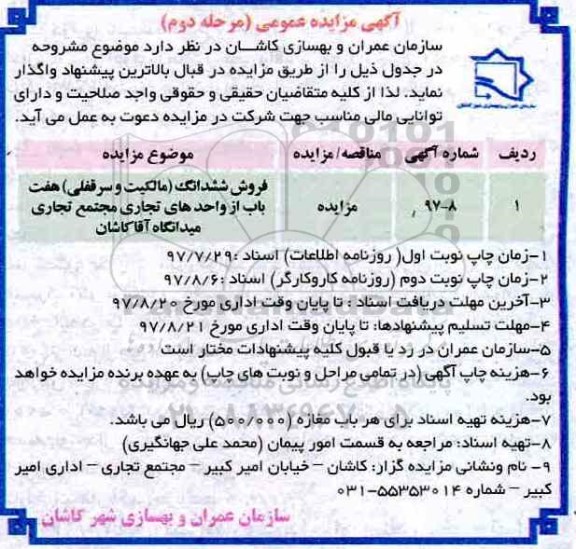 آگهی مزایده عمومی (مرحله دوم)
سازمان عمران و بهسازی کاشـــان در نظر دارد موضوع مشروحه
در جدول ذیل را از طریق مزایده در قبال بالاترین پیشنهاد واگذار
نماید. لذا از کلیه متقاضیان حقیقی و حقوقی واجد صلاحیت و دارای
توانایی مالی مناسب جهت شرکت در مزایده دعوت به عمل می آید.
سازمان عمران و بهسازی شهر کاشان
ردیف شماره آگهی مناقصه/مزایده موضوع مزایده
۱ ۹۷-۸ مزایده فروش ششدانگ (مالکیت و سرقفلی) هفت
باب از واحد های تجاری مجتمع تجاری
میدانگاه آقا کاشان
۱-زمان چاپ نوبت اول( روزنامه اطلاعات) اسناد :۹۷/۷/۲۹
۲-زمان چاپ نوبت دوم (روزنامه کاروکارگر) اسناد :۹۷/۸/۶
۳-آخرین مهلت دریافت اسناد : تا پایان وقت اداری مورخ ۹۷/۸/۲۰
۴-مهلت تسلیم پیشنهادها: تا پایان وقت اداری مورخ ۹۷/۸/۲۱
۵-سازمان عمران در رد یا قبول کلیه پیشنهادات مختار است
۶-هزینه چاپ آگهی(در تمامی مراحل و نوبت های چاپ) به عهده برنده مزایده خواهد
بود.
۷-هزینه تهیه اسناد برای هر باب مغازه (۵۰۰/۰۰۰) ریال می باشد.
۸-تهیه اسناد: مراجعه به قسمت امور پیمان (محمد علی جهانگیری)
۹- نام ونشانی مزایده گزار: کاشان – خیابان امیر کبیر – مجتمع تجاری – اداری امیر
کبیر – شماره ۵۵۳۵۳۰۱۴-۰۳۱
سازمان عمران و بهسازی شهر کاشان